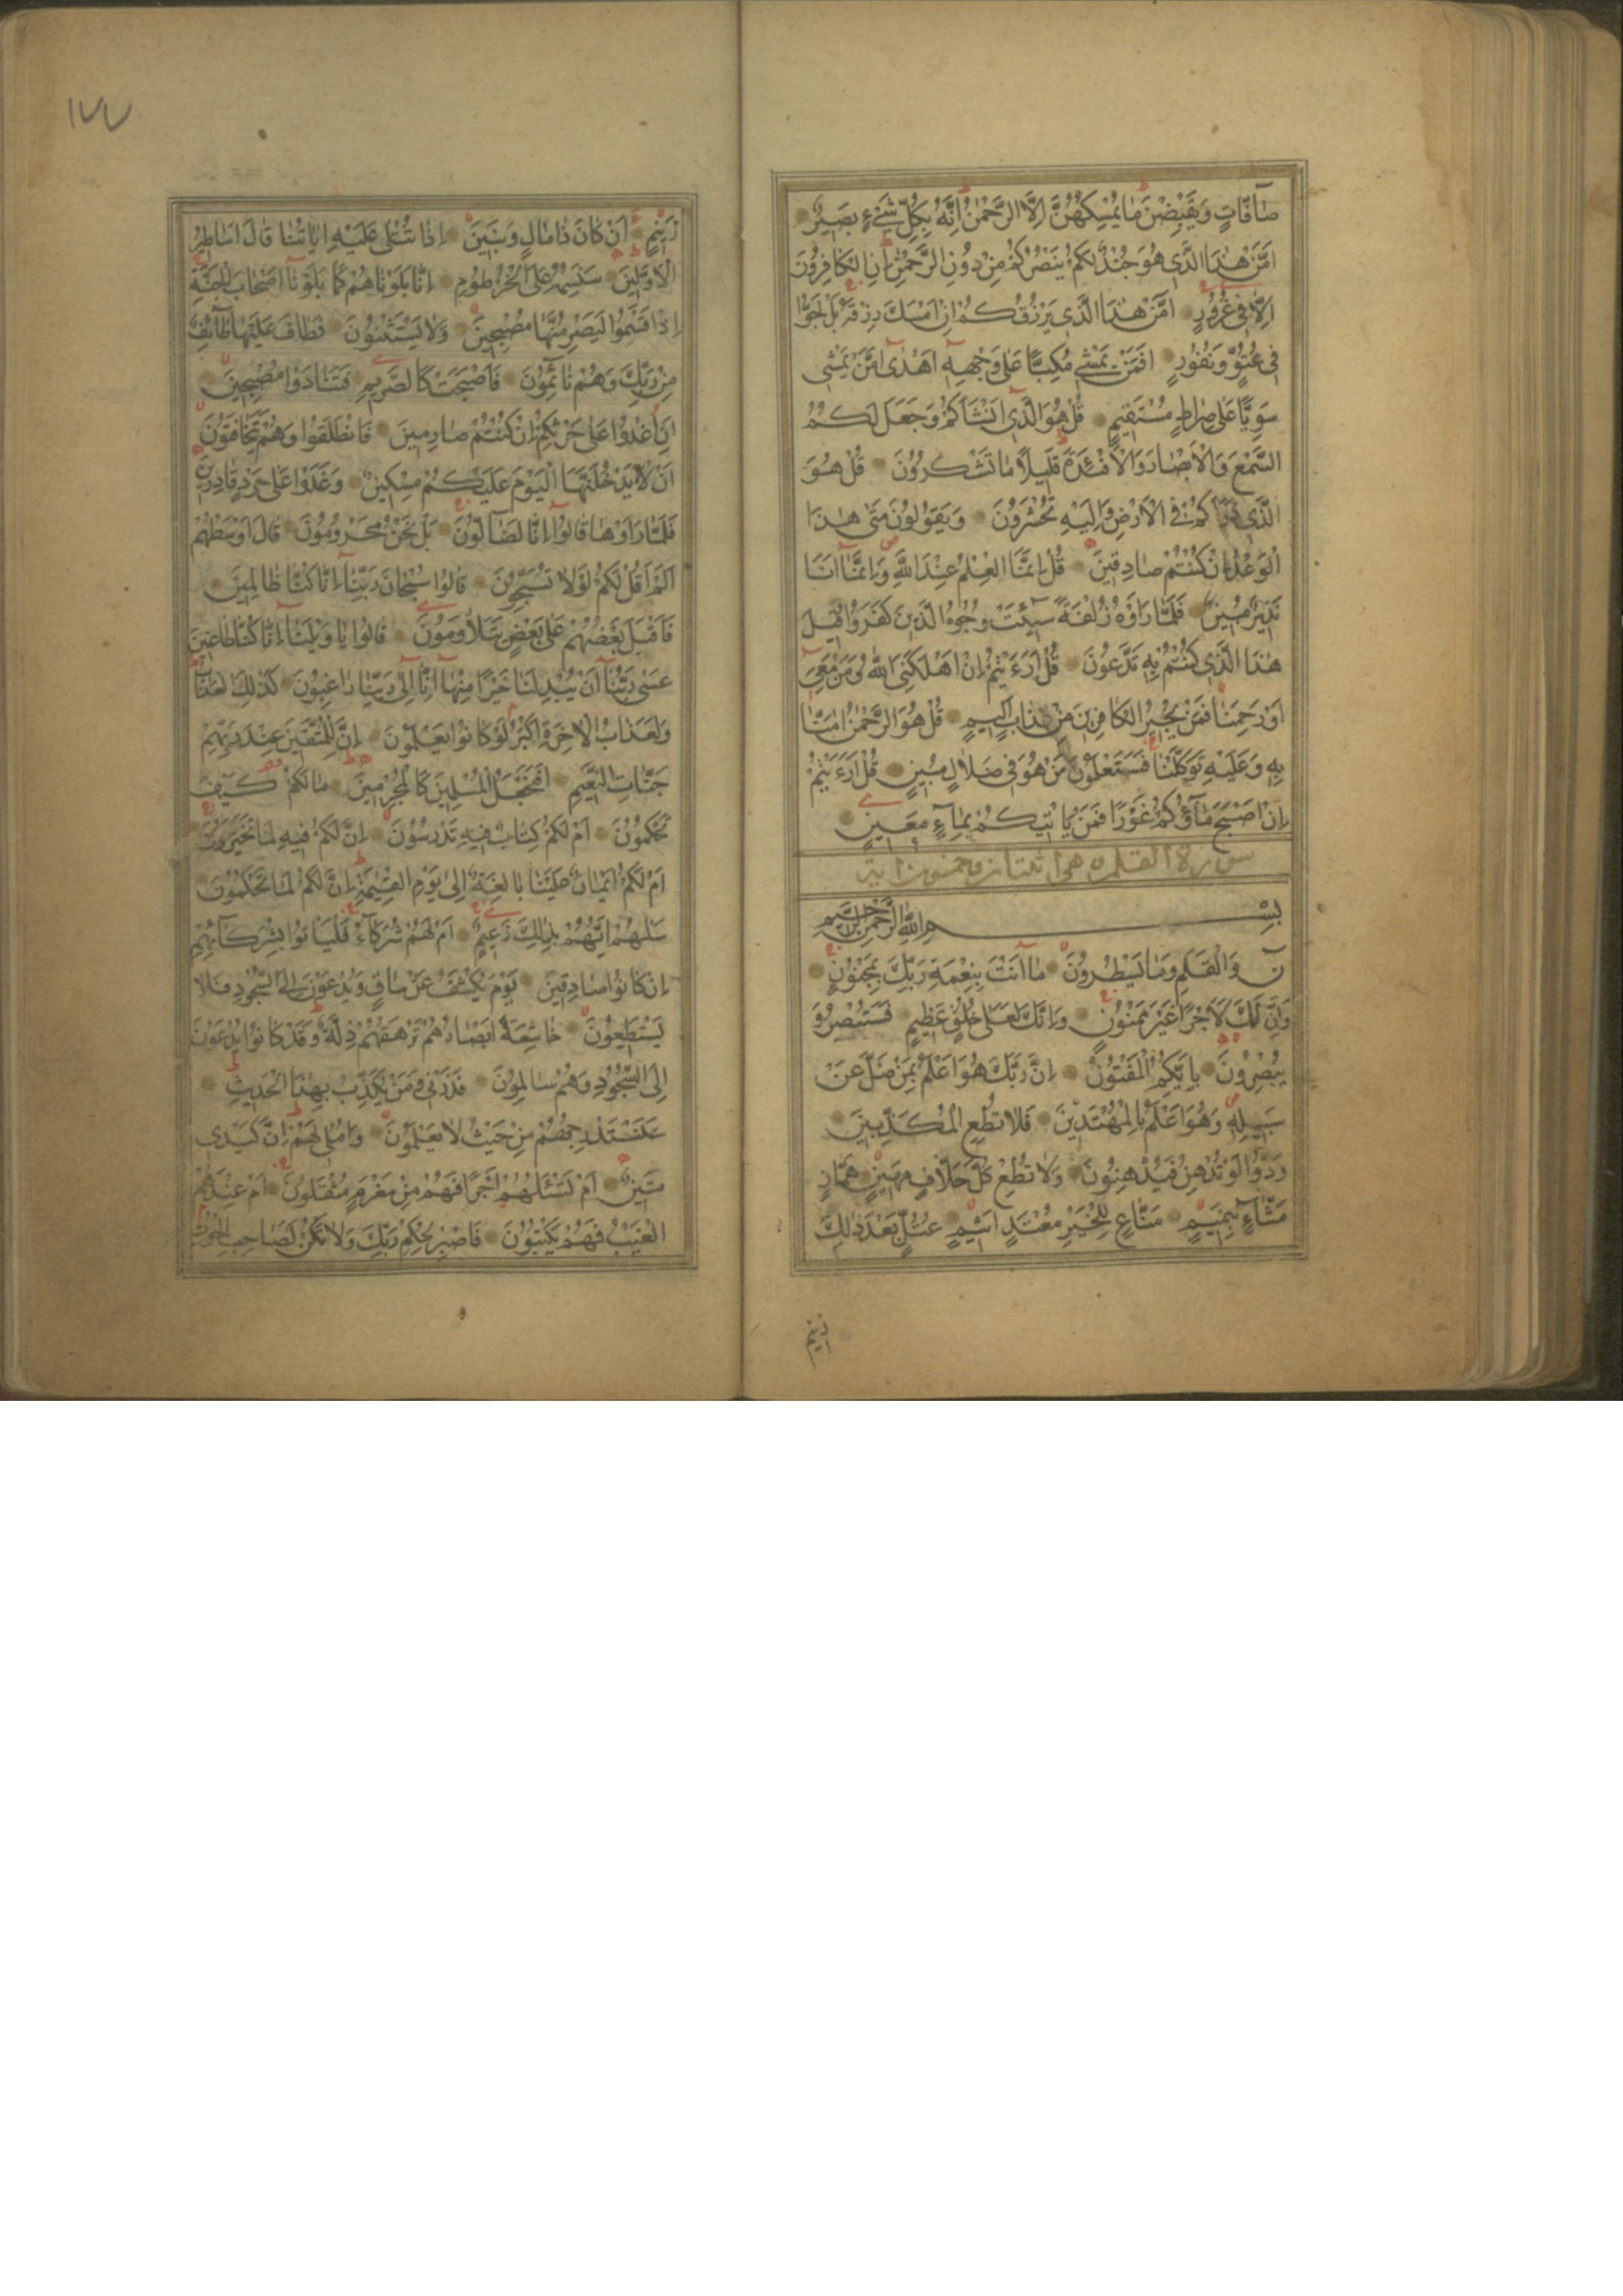 صافّاتٍ وَيَقْبِضْنَ مَا يُمْسِكُهُنَّ إِلَّا الرَّحْمٰنُ إِنَّهُ بِكُلِّ شَيْءٍ بَصِيرٌ
أَمَّنْ هٰذَا الَّذِي هُوَ جُنْدٌ لَكُمْ يَنْصُرُكُمْ مِنْ دُونِ الرَّحْمٰنِ إِنِ الْكَافِرُونَ
إِلَّا فِي غُرُورٍ أَمَّنْ هٰذَا الَّذِي يَرْزُقُكُمْ إِنْ أَمْسَكَ رِزْقَهُ بَلْ لَجُّوا
فِي عُتُوٍّ وَنُفُورٍ أَفَمَنْ يَمْشِي مُكِبًّا عَلَى وَجْهِهِ أَهْدَى أَمَّنْ يَمْشِي
سَوِيًّا عَلَى صِرَاطٍ مُسْتَقِيمٍ قُلْ هُوَ الَّذِي أَنْشَأَكُمْ وَجَعَلَ لَكُمُ
السَّمْعَ وَالْأَبْصَارَ وَالْأَفْئِدَةَ قَلِيلًا مَا تَشْكُرُونَ قُلْ هُوَ
الَّذِي ذَرَأَكُمْ فِي الْأَرْضِ وَإِلَيْهِ تُحْشَرُونَ وَيَقُولُونَ مَتَى هٰذَا
الْوَعْدُ إِنْ كُنْتُمْ صَادِقِينَ قُلْ إِنَّمَا الْعِلْمُ عِنْدَ اللّٰهِ وَإِنَّمَا أَنَا
نَذِيرٌ مُبِينٌ فَلَمَّا رَأَوْهُ زُلْفَةً سِيئَتْ وُجُوهُ الَّذِينَ كَفَرُوا وَقِيلَ
هٰذَا الَّذِي كُنْتُمْ بِهِ تَدَّعُونَ قُلْ أَرَءَيْتُمْ إِنْ أَهْلَكَنِيَ اللّٰهُ وَمَنْ مَعِيَ
أَوْ رَحِمَنَا فَمَنْ يُجِيرُ الْكَافِرِينَ مِنْ عَذَابٍ أَلِيمٍ قُلْ هُوَ الرَّحْمٰنُ اٰمَنَّا
بِهِ وَعَلَيْهِ تَوَكَّلْنَا فَسَتَعْلَمُونَ مَنْ هُوَ فِي ضَلَالٍ مُبِينٍ قُلْ أَرَءَيْتُمْ
إِنْ أَصْبَحَ مَاؤُكُمْ غَوْرًا فَمَنْ يَأْتِيكُمْ بِمَاءٍ مَعِينٍ
سورة القلم
بِسْمِ اللّٰهِ الرَّحْمٰنِ الرَّحِيمِ
نٓ وَالْقَلَمِ وَمَا يَسْطُرُونَ مَا أَنْتَ بِنِعْمَةِ رَبِّكَ بِمَجْنُونٍ
وَإِنَّ لَكَ لَأَجْرًا غَيْرَ مَمْنُونٍ وَإِنَّكَ لَعَلَى خُلُقٍ عَظِيمٍ فَسَتُبْصِرُ وَ
يُبْصِرُونَ بِأَيِّكُمُ الْمَفْتُونُ إِنَّ رَبَّكَ هُوَ أَعْلَمُ بِمَنْ ضَلَّ عَنْ
سَبِيلِهِ وَهُوَ أَعْلَمُ بِالْمُهْتَدِينَ فَلَا تُطِعِ الْمُكَذِّبِينَ
وَدُّوا لَوْ تُدْهِنُ فَيُدْهِنُونَ وَلَا تُطِعْ كُلَّ حَلَّافٍ مَهِينٍ هَمَّازٍ
مَشَّاءٍ بِنَمِيمٍ مَنَّاعٍ لِلْخَيْرِ مُعْتَدٍ أَثِيمٍ عُتُلٍّ بَعْدَ ذٰلِكَ
زنيم
١٧٧
زَنِيمٍ أَنْ كَانَ ذَا مَالٍ وَبَنِينَ إِذَا تُتْلَى عَلَيْهِ اٰيَاتُنَا قَالَ أَسَاطِيرُ
الْأَوَّلِينَ سَنَسِمُهُ عَلَى الْخُرْطُومِ إِنَّا بَلَوْنَاهُمْ كَمَا بَلَوْنَا أَصْحَابَ الْجَنَّةِ
إِذْ أَقْسَمُوا لَيَصْرِمُنَّهَا مُصْبِحِينَ وَلَا يَسْتَثْنُونَ فَطَافَ عَلَيْهَا طَائِفٌ
مِنْ رَبِّكَ وَهُمْ نَائِمُونَ فَأَصْبَحَتْ كَالصَّرِيمِ فَتَنَادَوْا مُصْبِحِينَ
أَنِ اغْدُوا عَلَى حَرْثِكُمْ إِنْ كُنْتُمْ صَارِمِينَ فَانْطَلَقُوا وَهُمْ يَتَخَافَتُونَ
أَنْ لَا يَدْخُلَنَّهَا الْيَوْمَ عَلَيْكُمْ مِسْكِينٌ وَغَدَوْا عَلَى حَرْدٍ قَادِرِينَ
فَلَمَّا رَأَوْهَا قَالُوا إِنَّا لَضَالُّونَ بَلْ نَحْنُ مَحْرُومُونَ قَالَ أَوْسَطُهُمْ
أَلَمْ أَقُلْ لَكُمْ لَوْلَا تُسَبِّحُونَ قَالُوا سُبْحَانَ رَبِّنَا إِنَّا كُنَّا ظَالِمِينَ
فَأَقْبَلَ بَعْضُهُمْ عَلَى بَعْضٍ يَتَلَاوَمُونَ قَالُوا يَا وَيْلَنَا إِنَّا كُنَّا طَاغِينَ
عَسَى رَبُّنَا أَنْ يُبْدِلَنَا خَيْرًا مِنْهَا إِنَّا إِلَى رَبِّنَا رَاغِبُونَ كَذٰلِكَ الْعَذَابُ
وَلَعَذَابُ الْاٰخِرَةِ أَكْبَرُ لَوْ كَانُوا يَعْلَمُونَ إِنَّ لِلْمُتَّقِينَ عِنْدَ رَبِّهِمْ
جَنَّاتِ النَّعِيمِ أَفَنَجْعَلُ الْمُسْلِمِينَ كَالْمُجْرِمِينَ مَا لَكُمْ كَيْفَ
تَحْكُمُونَ أَمْ لَكُمْ كِتَابٌ فِيهِ تَدْرُسُونَ إِنَّ لَكُمْ فِيهِ لَمَا تَخَيَّرُونَ
أَمْ لَكُمْ أَيْمَانٌ عَلَيْنَا بَالِغَةٌ إِلَى يَوْمِ الْقِيٰمَةِ إِنَّ لَكُمْ لَمَا تَحْكُمُونَ
سَلْهُمْ أَيُّهُمْ بِذٰلِكَ زَعِيمٌ أَمْ لَهُمْ شُرَكَاءُ فَلْيَأْتُوا بِشُرَكَائِهِمْ
إِنْ كَانُوا صَادِقِينَ يَوْمَ يُكْشَفُ عَنْ سَاقٍ وَيُدْعَوْنَ إِلَى السُّجُودِ فَلَا
يَسْتَطِيعُونَ خَاشِعَةً أَبْصَارُهُمْ تَرْهَقُهُمْ ذِلَّةٌ وَقَدْ كَانُوا يُدْعَوْنَ
إِلَى السُّجُودِ وَهُمْ سَالِمُونَ فَذَرْنِي وَمَنْ يُكَذِّبُ بِهٰذَا الْحَدِيثِ
سَنَسْتَدْرِجُهُمْ مِنْ حَيْثُ لَا يَعْلَمُونَ وَأُمْلِي لَهُمْ إِنَّ كَيْدِي
مَتِينٌ أَمْ تَسْئَلُهُمْ أَجْرًا فَهُمْ مِنْ مَغْرَمٍ مُثْقَلُونَ أَمْ عِنْدَهُمُ
الْغَيْبُ فَهُمْ يَكْتُبُونَ فَاصْبِرْ لِحُكْمِ رَبِّكَ وَلَا تَكُنْ كَصَاحِبِ الْحُوتِ